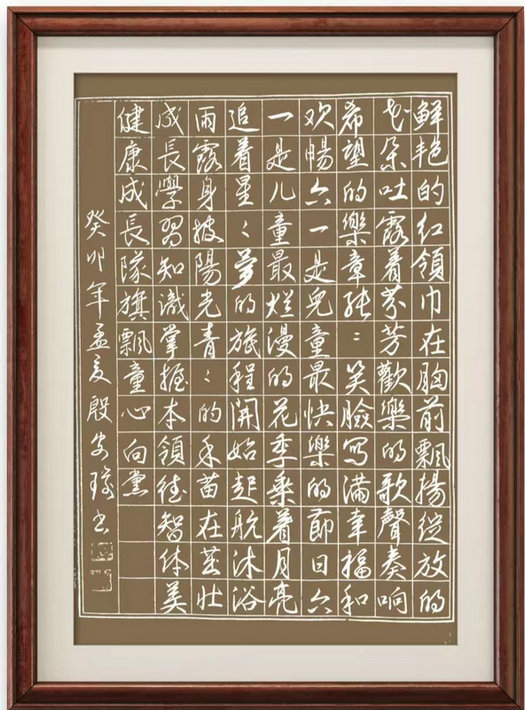 鮮艳的红領巾在胸前飄揚綻放的
花朵吐露着芬芳歡樂的歌聲奏响
希望的樂章張〻笑臉写滿幸福和
欢暢六一是兒童最快樂的節日六
一是儿童最烂漫的花季乘着月亮
追着星〻夢的旅程開始起航沐浴
雨露身披陽光青〻的禾苗在茁壮
成長學習知識掌握本領德智体美
健康成長隊旗飄童心向黨
癸卯年孟夏殷安书